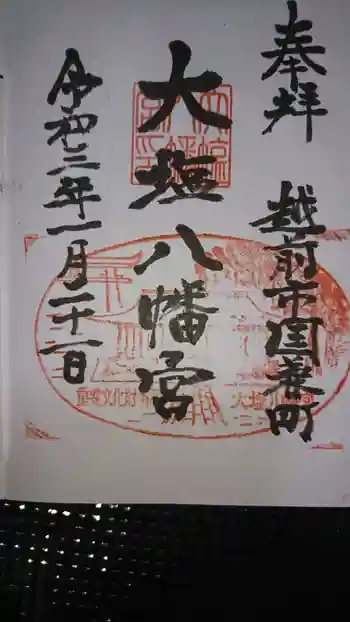 奉拝
越前市国兼町
大塩八幡宮
令和三年一月二十一日